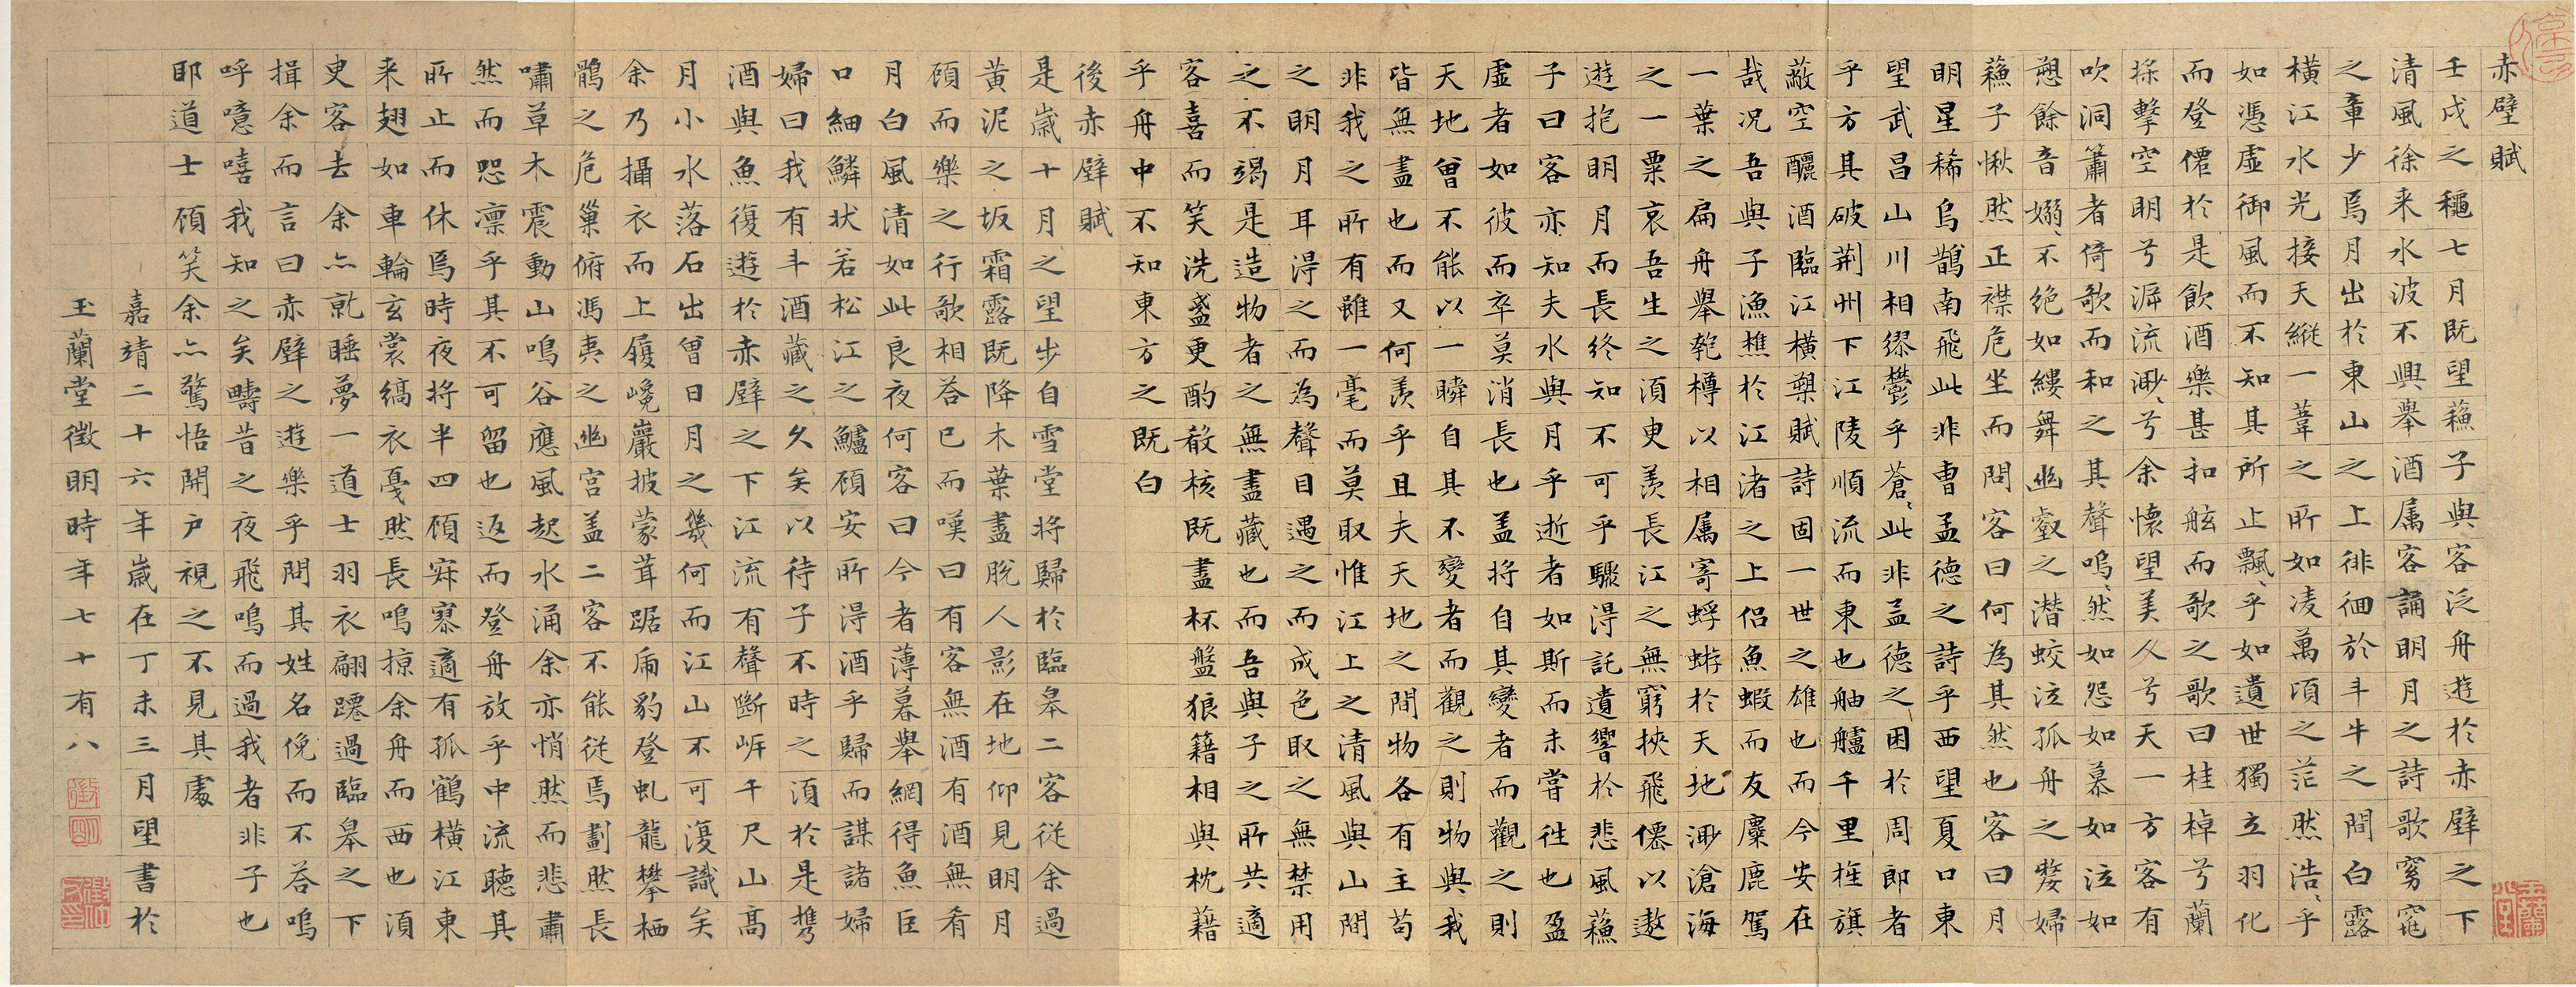 赤壁賦
壬戌之穐七月既望蘓子與客泛舟遊於赤壁之下
清風徐来水波不興舉酒属客誦明月之詩歌窈窕
之章少焉月出於東山之上徘徊於斗牛之間白露
横江水光接天縱一葦之所如凌萬頃之茫然浩〻乎
如憑虛御風而不知其所止飄〻乎如遺世獨立羽化
而登僊於是飲酒樂甚扣舷而歌之歌曰桂棹兮蘭
槳擊空明兮泝流渺〻兮余懷望美人兮天一方客有
吹洞簫者倚歌而和之其聲嗚〻然如怨如慕如泣如
愬餘音嫋〻不絶如縷舞幽壑之潜蛟泣孤舟之嫠婦
蘓子愀然正襟危坐而問客曰何為其然也客曰月
明星稀烏鵲南飛此非曹孟德之詩乎西望夏口東
望武昌山川相繆鬱乎蒼〻此非孟德之困於周郎者
乎方其破荆州下江陵順流而東也舳艫千里旌旗
蔽空釃酒臨江横槊賦詩固一世之雄也而今安在
哉况吾與子漁樵於江渚之上侣魚蝦而友麋鹿駕
一葉之扁舟舉匏樽以相属寄蜉蝣於天地渺滄海
之一粟哀吾生之須臾羨長江之無窮挾飛僊以遨
遊抱明月而長終知不可乎驟得託遺響於悲風蘓
子曰客亦知夫水與月乎逝者如斯而未嘗往也盈
虛者如彼而卒莫消長也盖將自其變者而觀之則
天地曾不能以一瞬自其不變者而觀之則物與我
皆無盡也而又何羨乎且夫天地之間物各有主苟
非我之所有雖一毫而莫取惟江上之清風與山間
之明月耳得之而為聲目遇之而成色取之無禁用
之不竭是造物者之無盡藏也而吾與子之所共適
客喜而笑洗盞更酌殽核既盡杯盤狼籍相與枕藉
乎舟中不知東方之既白
後赤壁賦
是歲十月之望步自雪堂将歸於臨皋二客從余過
黃泥之坂霜露既降木葉盡脫人影在地仰見明月
顧而樂之行歌相荅已而嘆曰有客無酒有酒無肴
月白風清如此良夜何客曰今者薄暮舉網得魚巨
口細鱗状若松江之鱸顧安所得酒乎歸而謀諸婦
婦曰我有斗酒藏之久矣以待子不時之須於是携
酒與魚復遊於赤壁之下江流有聲斷岸千尺山髙
月小水落石出曾日月之幾何而江山不可復識矣
余乃攝衣而上履巉巖披蒙茸踞虎豹登虬龍攀栖
鶻之危巢俯馮夷之幽宮盖二客不能從焉劃然長
嘯草木震動山鳴谷應風起水涌余亦悄然而悲肅
然而恐凛乎其不可留也返而登舟放乎中流聴其
所止而休焉時夜将半四顧寂寥適有孤鶴横江東
来翅如車輪玄裳縞衣戛然長鳴掠余舟而西也須
臾客去余亦就睡夢一道士羽衣翩躚過臨皋之下
揖余而言曰赤壁之遊樂乎問其姓名俛而不荅嗚
呼噫嘻我知之矣疇昔之夜飛鳴而過我者非子也
耶道士顧笑余亦驚悟開户視之不見其處
嘉靖二十六年歲在丁未三月望書於
玉蘭堂徵明時年七十有八
徵
明